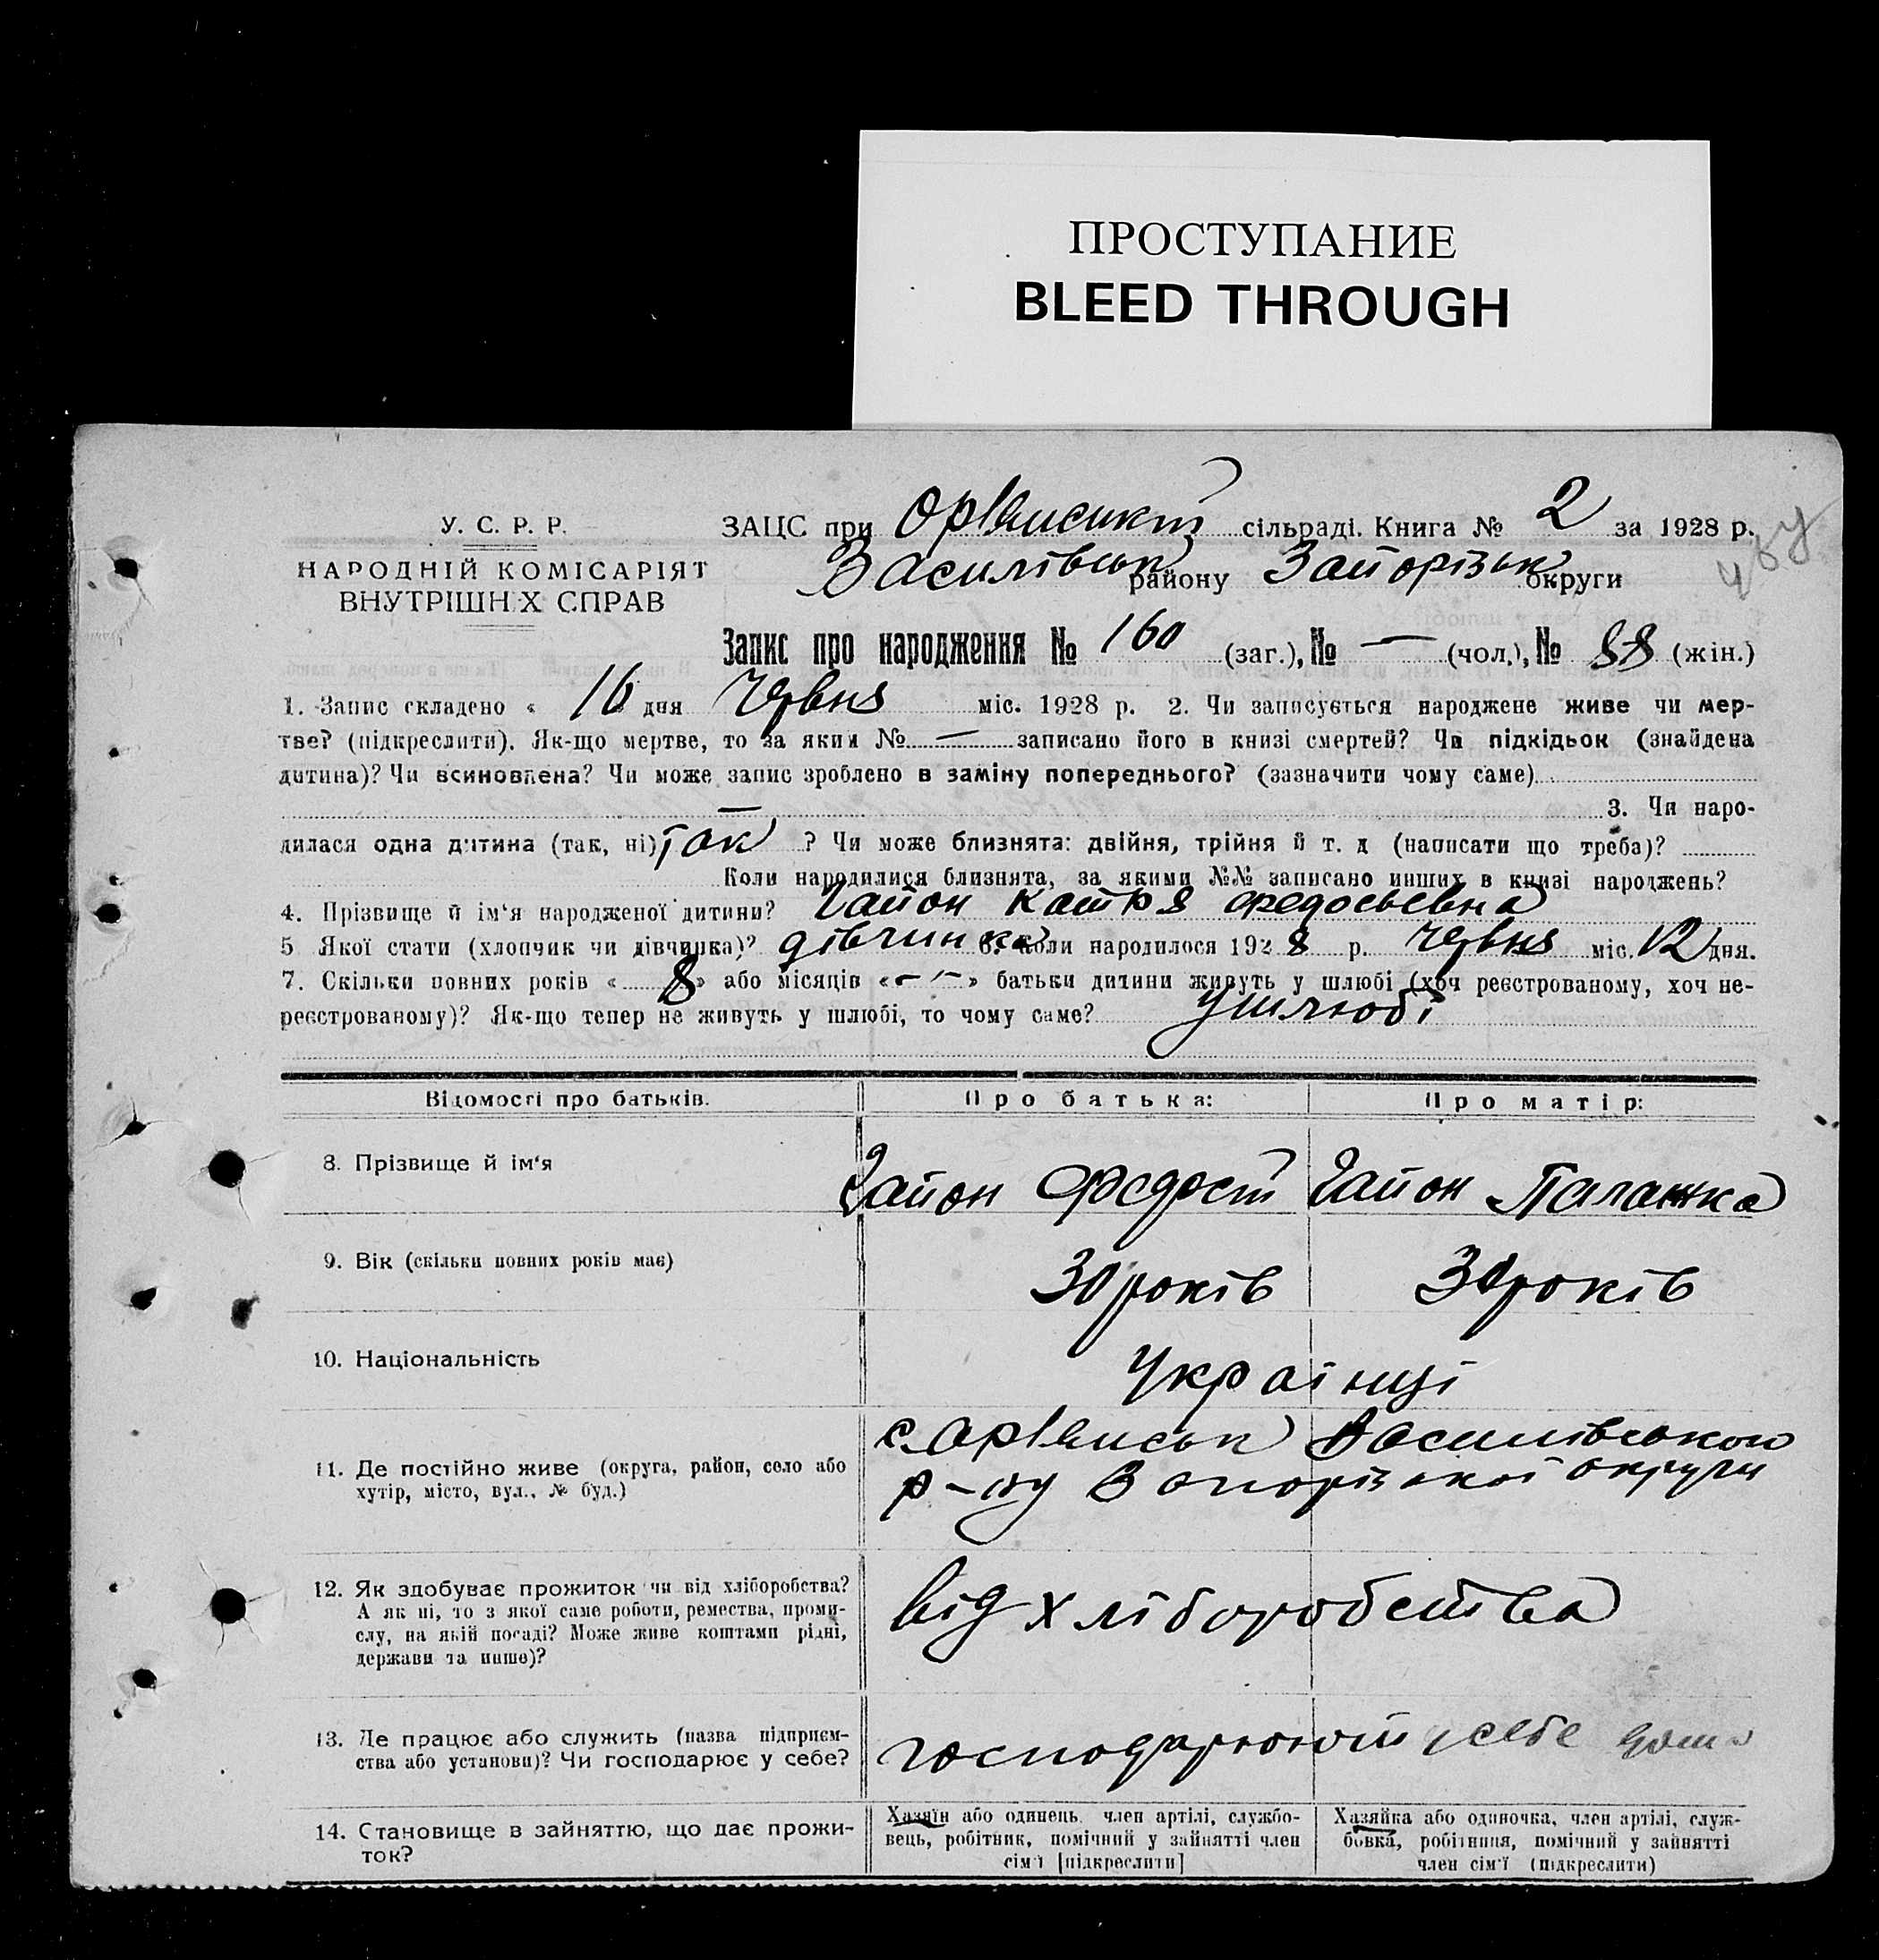 ПРОСТУПАНИЕ
BLEED THROUGH
У. С. Р. Р.
НАРОДНІЙ КОМІСАРІЯТ
ВНУТРІШНІХ СПРАВ
ЗАЦС при Оріянській сільраді. Книга № 2 за 1928 р.
Василівськ району Запорізьк округи
Запис про народження № 160 (заг.), № — (чол.), № 88 (жін.)
1. Запис складено « 16 » дня червня міс. 1928 р. 2. Чи записується народжене живе чи мер-
тве? (підкреслити). Як-що мертве, то за яким № — записано його в книзі смертей? Чи підкідьок (знайдена
дитина)? Чи всиновлена? Чи може запис зроблено в заміну попереднього? (зазначити чому саме)
— 3. Чи наро-
дилася одна дитина (так, ні) так ? Чи може близнята: двійня, трійня й т. д (написати що треба)?
Коли народилися близнята, за якими №№ записано инших в книзі народжень?
4. Прізвище й ім‘я народженої дитини? Гайон Катря Федосьевна
5 Якої стати (хлопчик чи дівчинка)? дівчинка 6. Коли народилося 1928 р. червня міс. 12 дня.
7. Скільки повних років « 8 » або місяців « — » батьки дитини живуть у шлюбі (хоч реєстрованому, хоч не-
реєстрованому)? Як-що тепер не живуть у шлюбі, то чому саме? у шлюбі
Відомості про батьків. Про батька: Про матір:
8. Прізвище й ім‘я Гайон Федосій Гайон Палажка
9. Вік (скільки повних років має) 30 років 30 років
10. Національність Українці
11. Де постійно живе (округа, район, село або
хутір, місто, вул., № буд.)
с. Оріянськ Василівського
р-ну Запорізької округи
12. Як здобуває прожиток чи від хліборобства?
А як ні, то з якої саме роботи, ремества, проми-
слу, на якій посаді? Може живе коштами рідні,
держави та инше)?
від хліборобства
13. Де працює або служить (назва підприєм-
ства або установи)? Чи господарює у себе?
господарюют у себе дома
14. Становище в зайняттю, що дає прожи-
ток?
Хазяїн або одинець, член артілі, службо-
вець, робітник, помічний у зайнятті член
сім‘ї [підкреслити]
Хазяйка або одиночка, член артілі, служ-
бовка, робітниця, помічний у зайнятті
член сім‘ї (підкреслити)